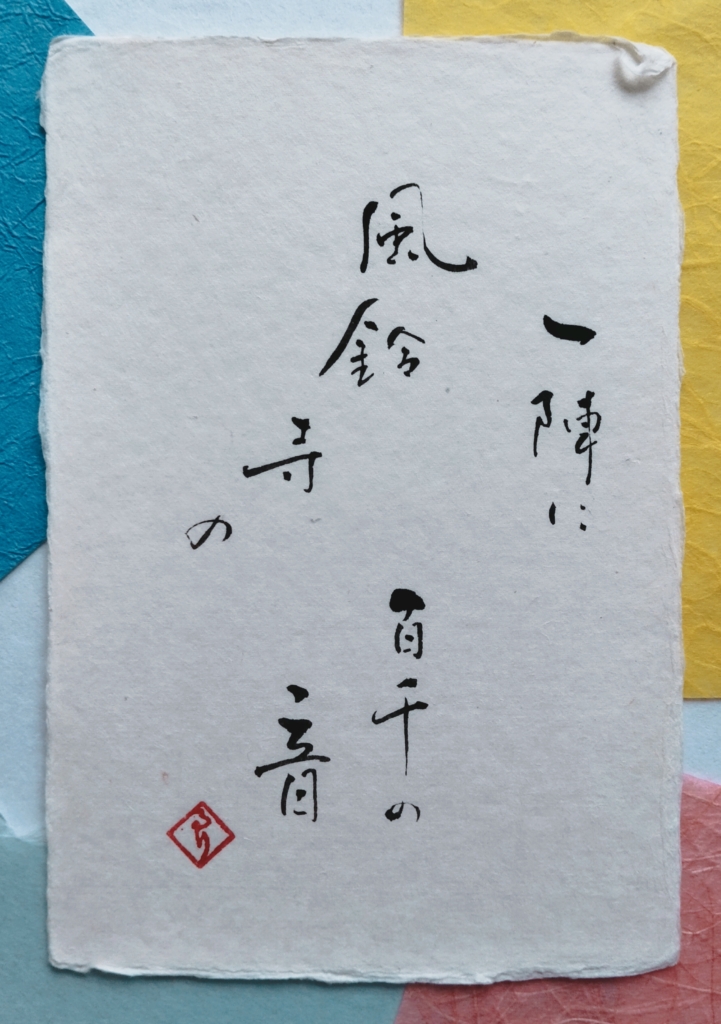 一陣に
風鈴寺の
百千の
音